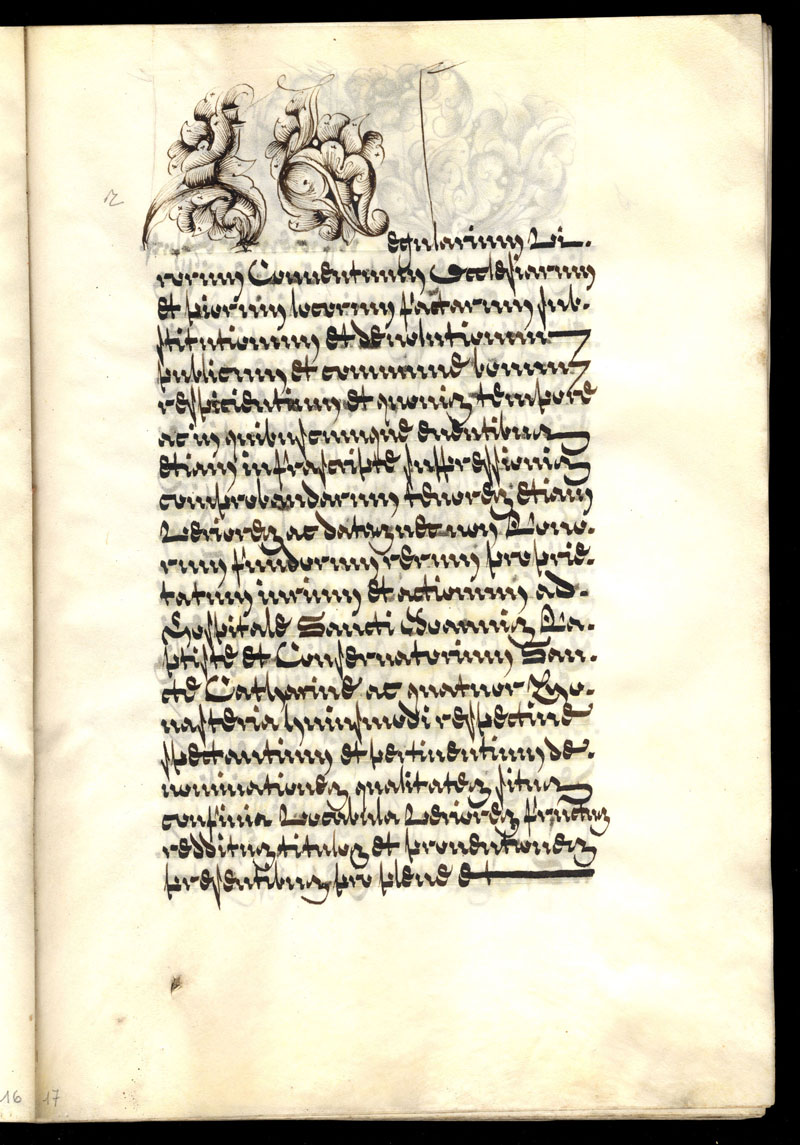 R
egularium Vi-
rorum Conventuum Ecclesiarum
et piorum locorum factarum sub-
stitutionum et devolutionum
publicum et commune bonum
respicientium et quovis tempore
ac in quibuscumque eventibus
etiam infrascripte suppressionis
comprobandarum tenores etiam
veriores ac datas nec non Bono-
rum fundorum rerum proprie-
tatum iurium et actionum ad-
Hospitale Sancti Joannis Ba-
ptiste et Conservatorium San-
cte Catharine ac quatuor Mo-
nasteria huiusmodi respective
spectantium et pertinentium de-
nominationes qualitates situs
confinia Vocabula veriores fructus
redditus titulos et proventiones
presentibus pro plene et
16 17